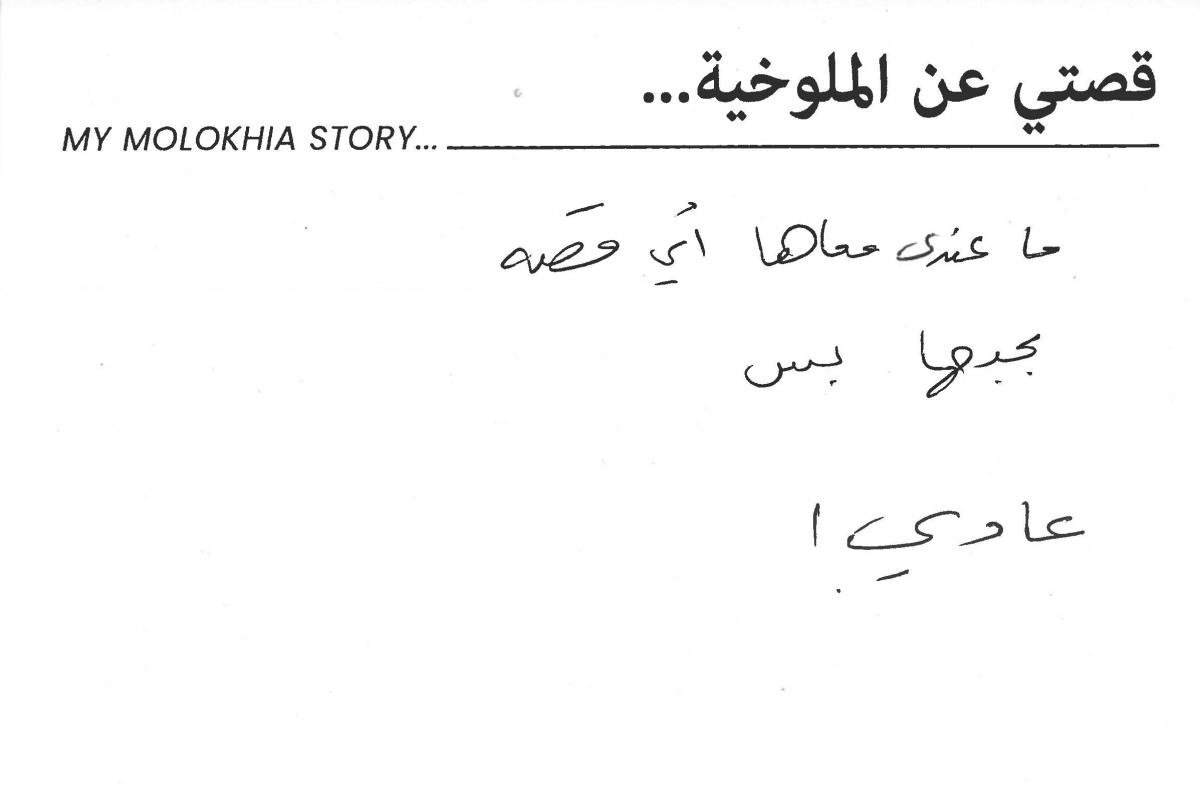 قصتي عن الملوخية...
MY MOLOKHIA STORY...
ما عندى معاها أي قصه
بحبها بس
عادي !